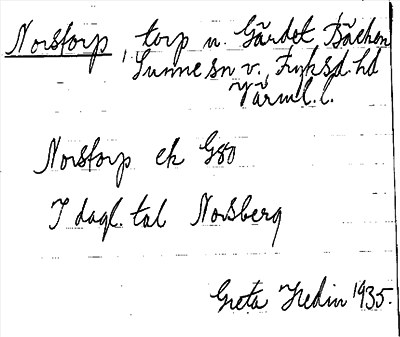 Norstorp, torp u. Gärdet Bäcken
Sunne sn v. Fryksd. hd
Värml. l.
Norstorp ek G80
I dagl. tal Norsberg
Greta Hedin 1935.